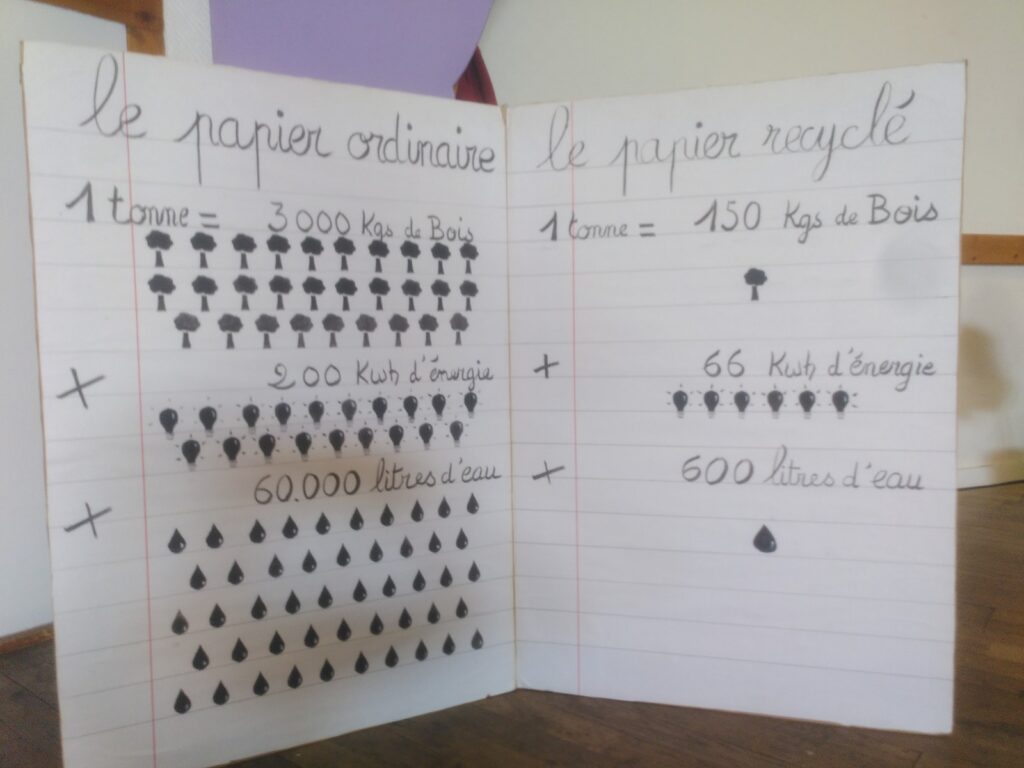 le papier ordinaire
1 tonne = 3000 Kgs de Bois
+ 200 Kwh d'énergie
+ 60.000 litres d'eau
le papier recyclé
1 tonne = 150 Kgs de Bois
+ 66 Kwh d'énergie
+ 600 litres d'eau